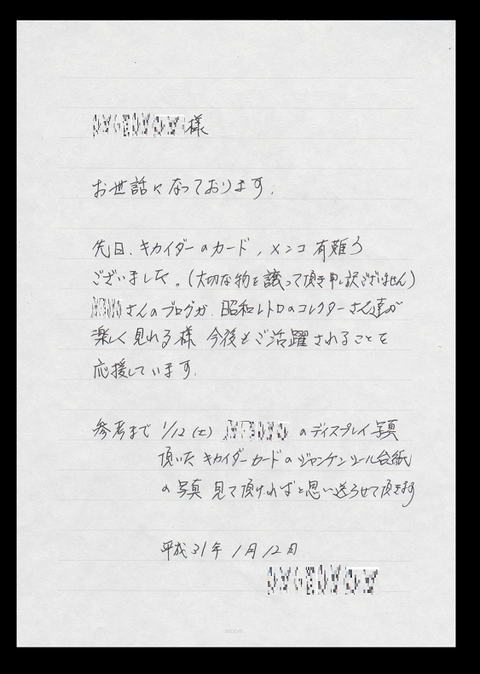 様
お世話になっております。
先日、キカイダーのカード、メンコ有難う
ございました。(大切な物を譲って頂き申し訳ございません)
さんのブログが、昭和レトロのコレクターさん達が
楽しく見れる様 今後もご活躍されることを
応援しています。
参考まで 1/12(土) のディスプレイ写真
頂いた キカイダーカードのジャンケンシール台紙
の写真 見て頂ければと思い送らせて頂きます
平成31年 1月12日